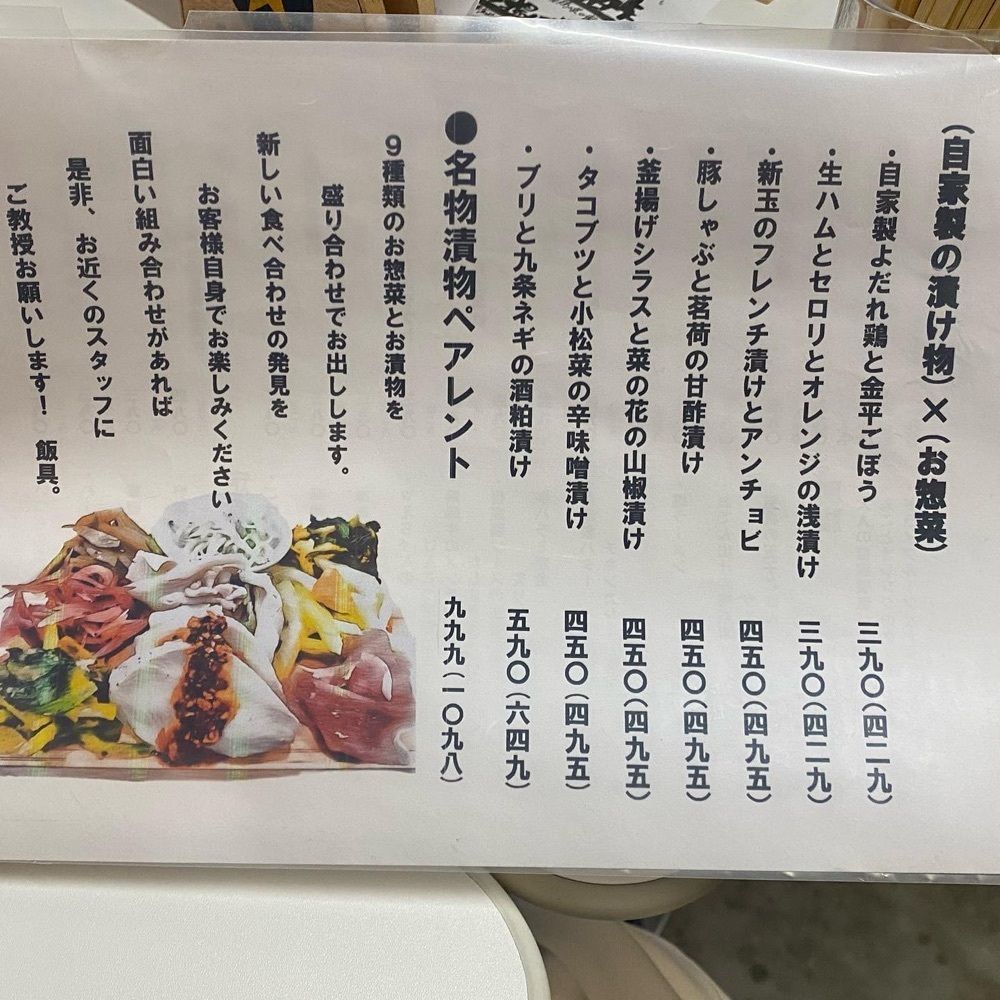 (自家製の漬け物)×(お惣菜)
・自家製よだれ鶏と金平ごぼう 三九〇(四二九)
・生ハムとセロリとオレンジの浅漬け 三九〇(四二九)
・新玉のフレンチ漬けとアンチョビ 四五〇(四九五)
・豚しゃぶと茗荷の甘酢漬け 四五〇(四九五)
・釜揚げシラスと菜の花の山椒漬け 四五〇(四九五)
・タコブツと小松菜の辛味噌漬け 四五〇(四九五)
・ブリと九条ネギの酒粕漬け 五九〇(六四九)
●名物漬物ペアレント 九九九(一〇九八)
9種類のお惣菜とお漬物を
盛り合わせでお出しします。
新しい食べ合わせの発見を
お客様自身でお楽しみください
面白い組み合わせがあれば
是非、お近くのスタッフに
ご教授お願いします! 飯具。